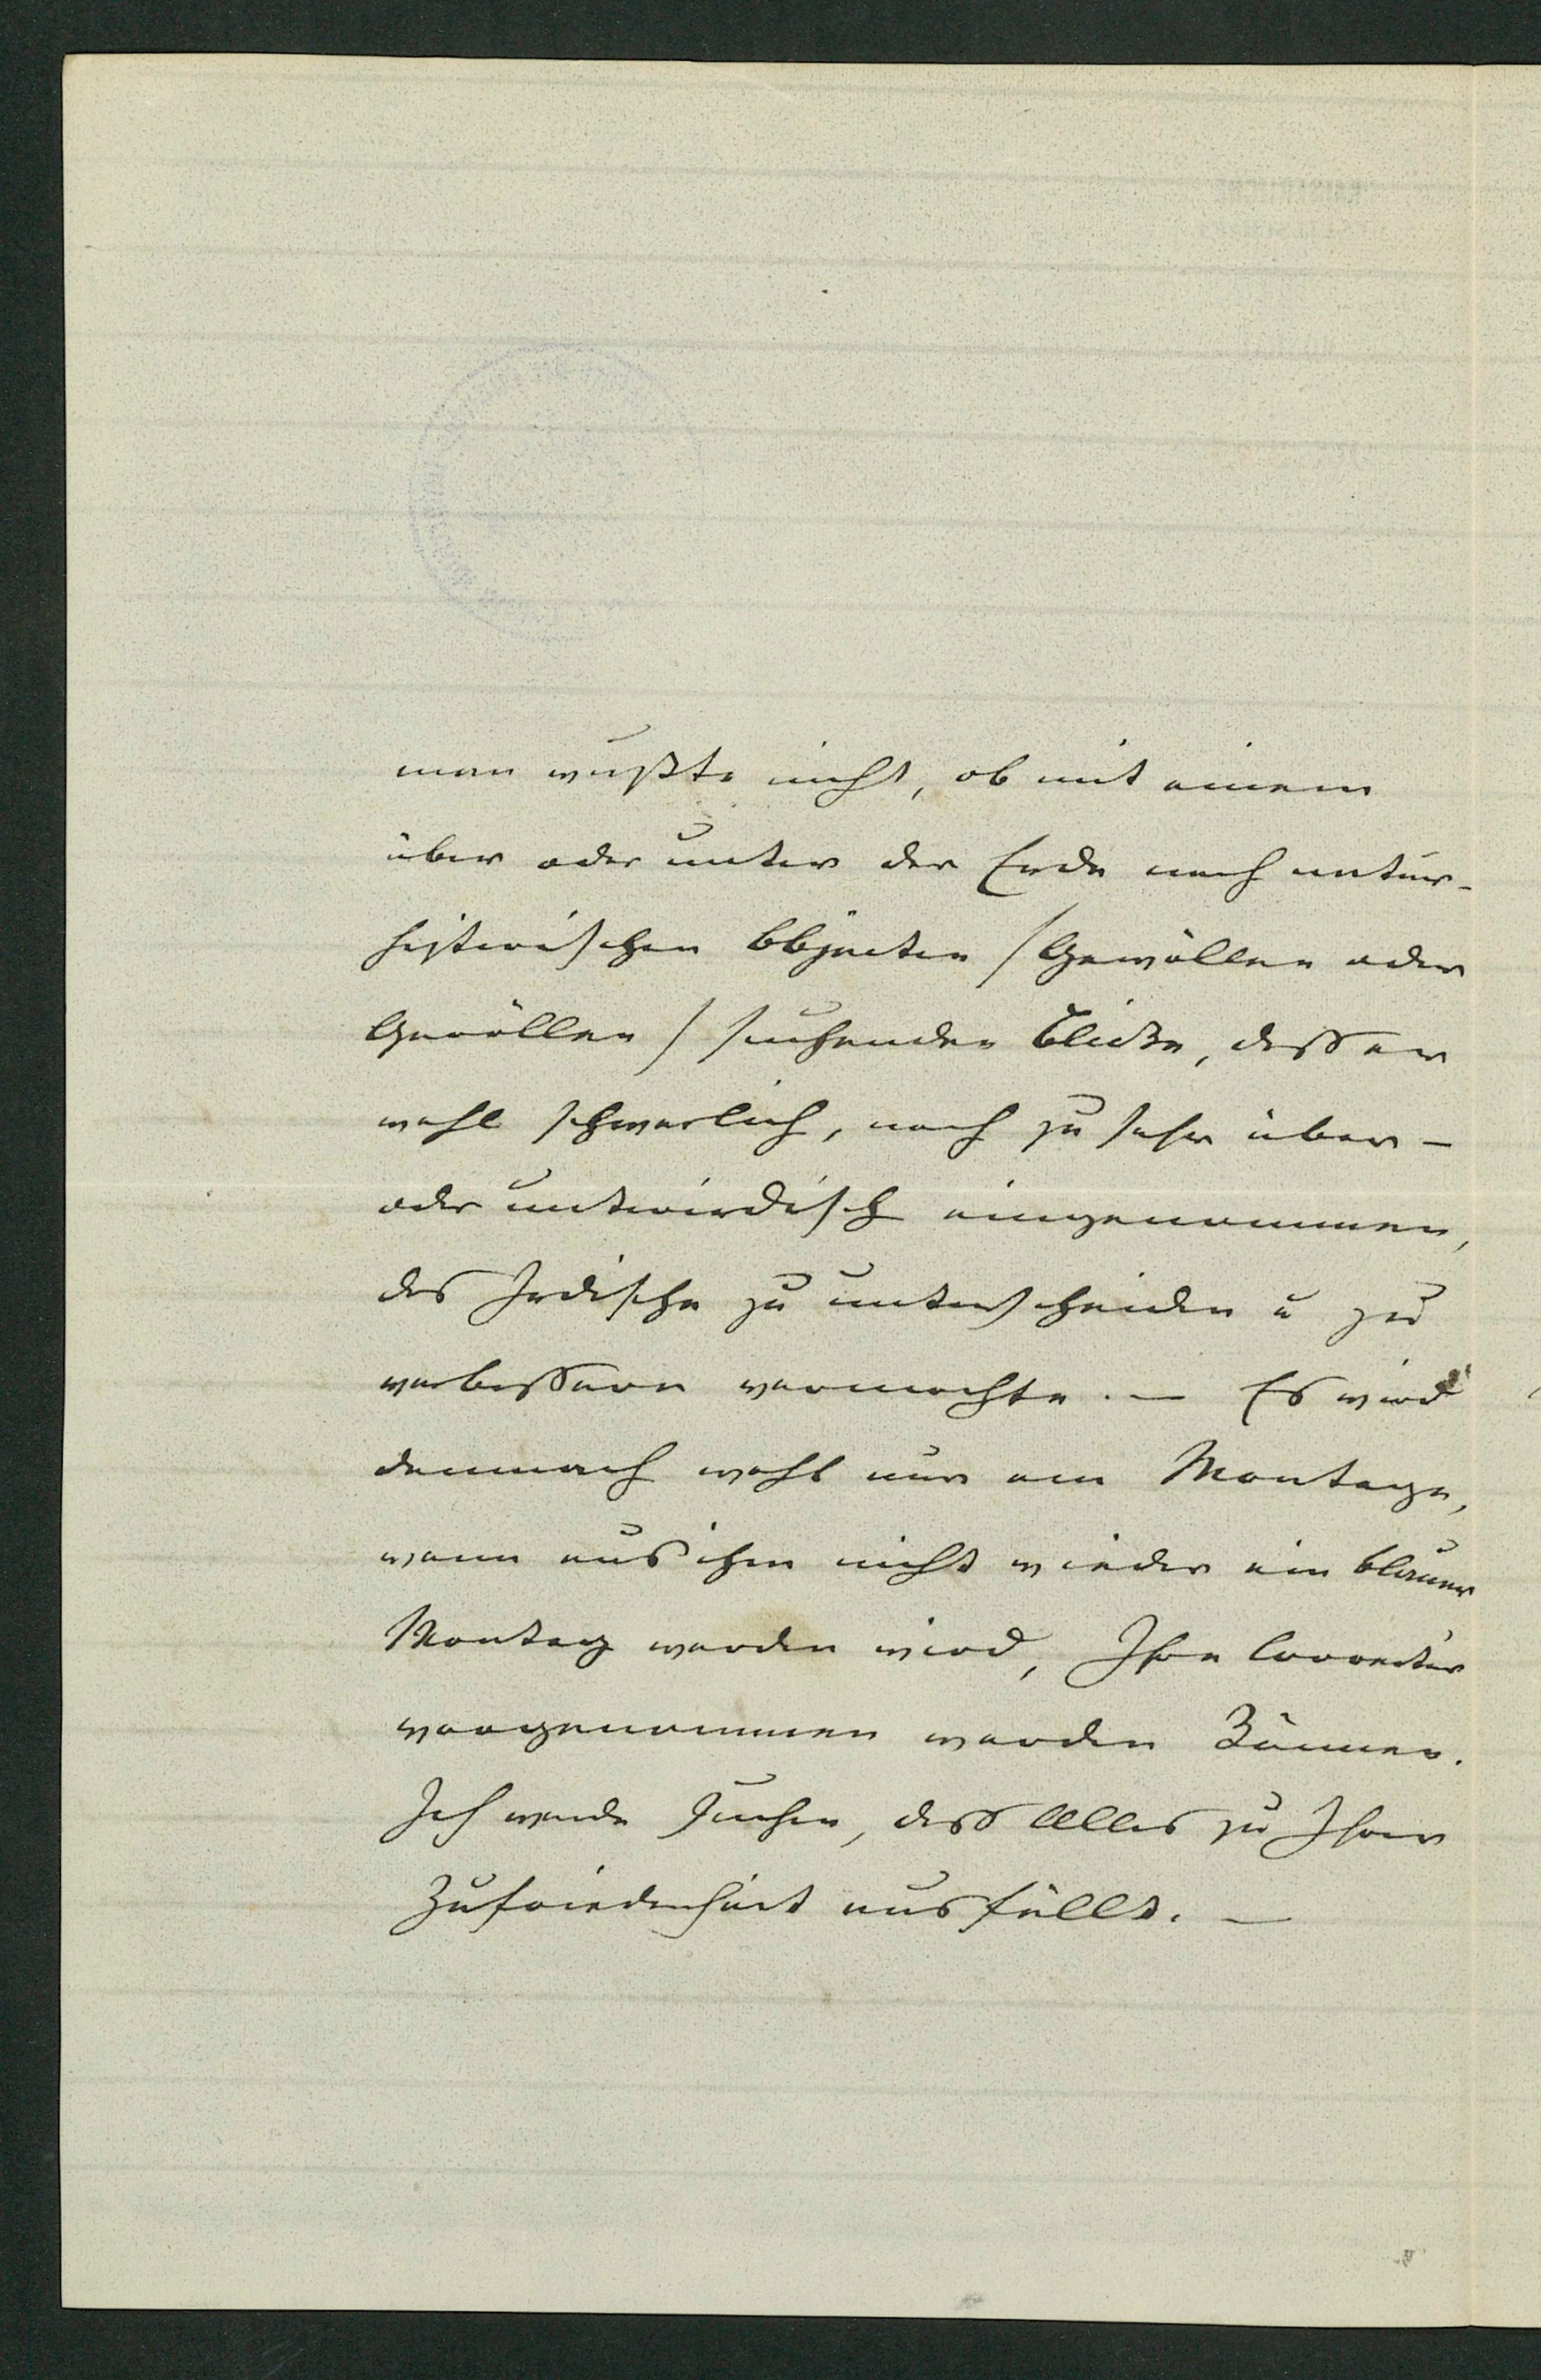 man wußte nicht, ob mit einem
über oder unter der Erde nach natur-
historischen Objecten /Gewöllen oder
Geröllen/ suchenden Blicke, daß er
wohl schwerlich, noch zu sehr über-
oder unterirdisch eingenommen,
das Irdische zu unterscheiden u zu
verbessern vermochte. — Es wird
demnach wohl nur am Montage,
wenn aus ihm nicht wieder ein blauer
Montag werden wird, Ihre Correctur
vorgenommen werden können.
Ich werde suchen, daß Alles zu Ihrer
Zufriedenheit ausfällt. —